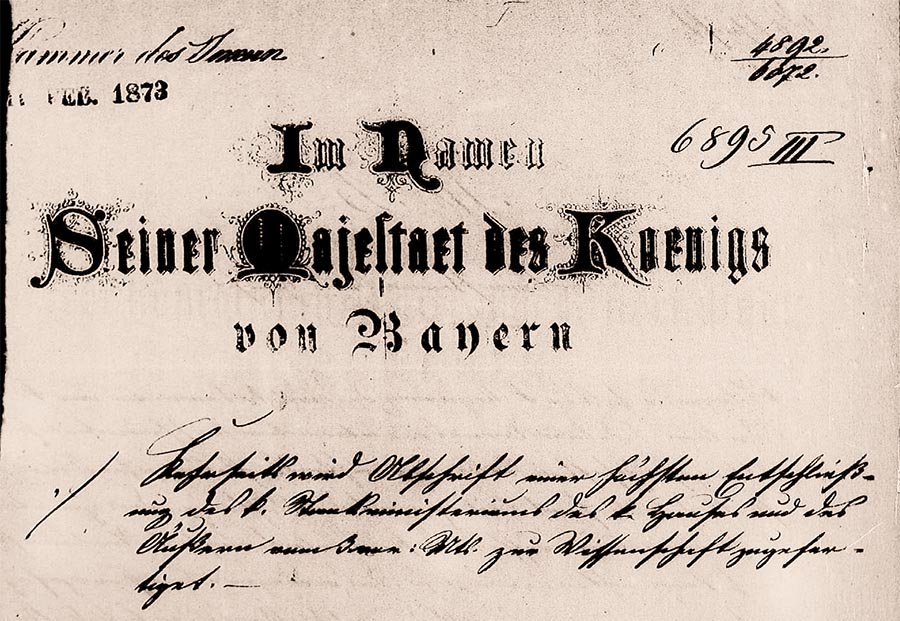 Kammer des Innern
FEB. 1873
4892.
6072.
6895 III
Im Namen
Seiner Majestaet des Koenigs
von Bayern
Kehrseits wird Abschrift einer höchsten Entschließ-
ung des k. Staatsministeriums des k. Hauses und des
Äußern vom : Mts. zur Wissenschaft zugefer-
tiget. —